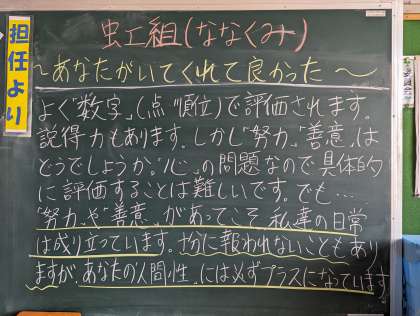 担任より
虹組(ななくみ)
～あなたがいてくれて良かった～
よく"数字"(点・順位)で評価されます。
説得力もあります。しかし"努力"、"善意"は
どうでしょうか。"心"の問題なので具体的
に評価することは難しいです。でも…
"努力"や"善意"があってこそ、私達の日常
は成り立っています。十分に報われないこともあり
ますが、あなたの"人間性"には必ずプラスになっています。